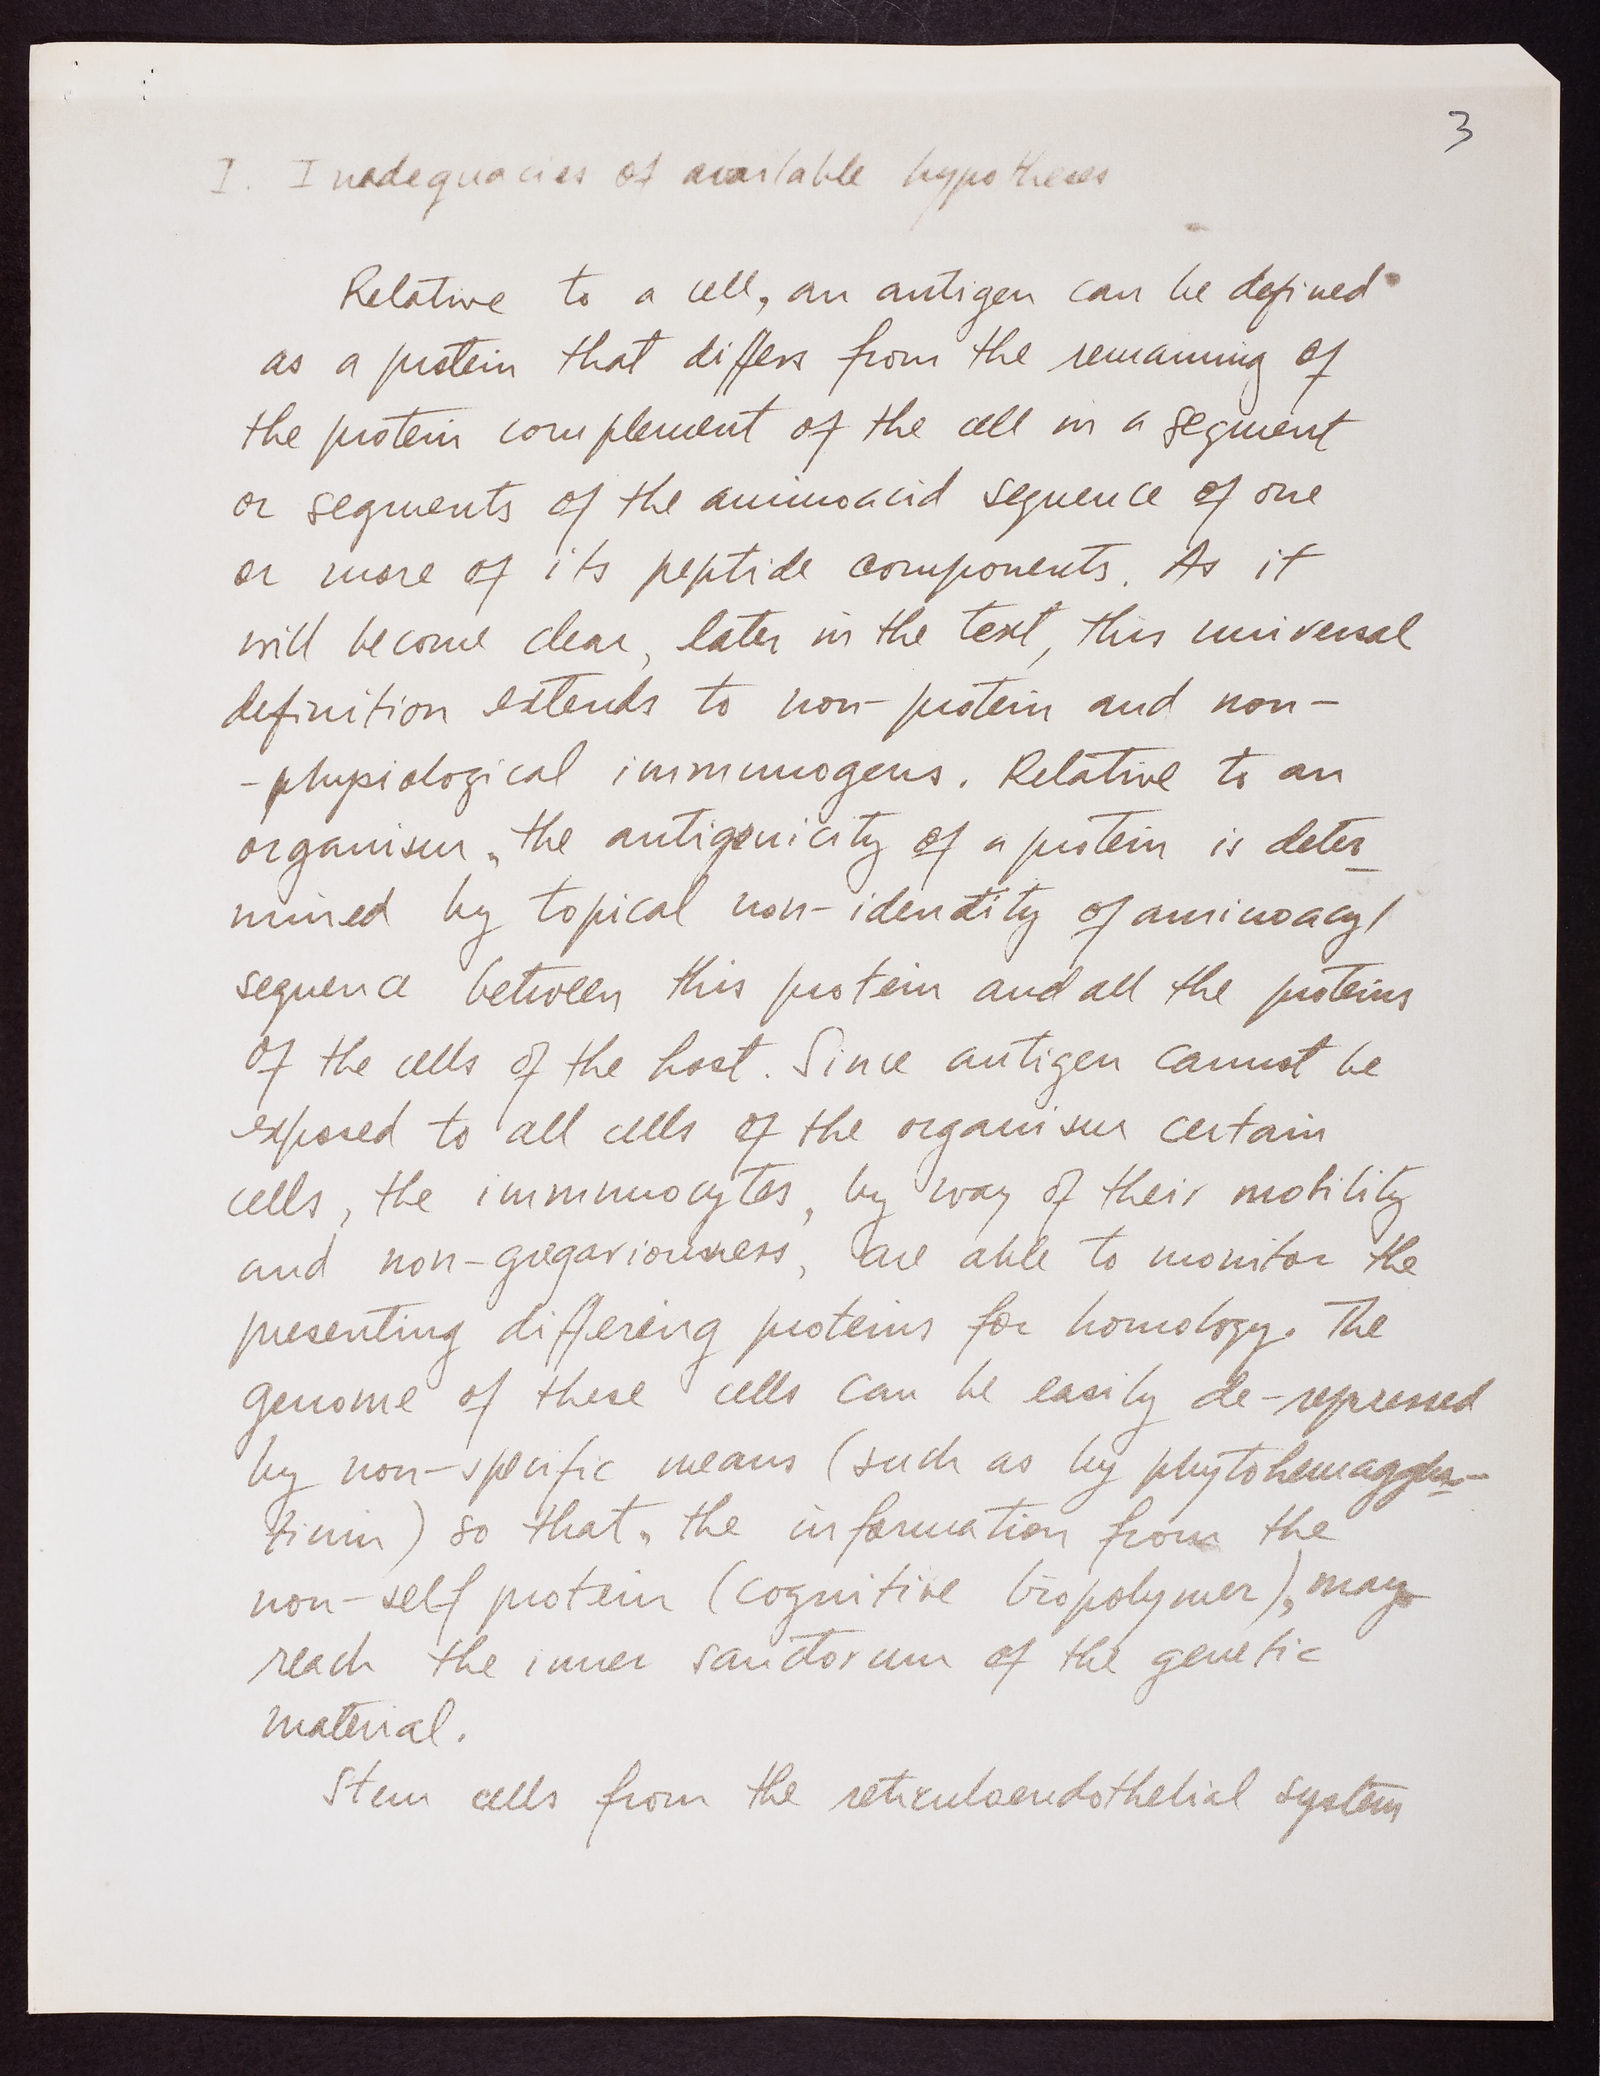 3
I. Inadequacies of available hypotheses
Relative to a cell, an antigen can be defined
as a protein that differs from the remaining of
the protein complement of the cell in a segment
or segments of the aminoacid sequence of one
or more of its peptide components. As it
will become clear, later in the text, this universal
definition extends to non-protein and non-
-physiological immunogens. Relative to an
organism, the antigenicity of a protein is deter
mined by topical non-identity of aminoacyl
sequence between this protein and all the proteins
of the cells of the host. Since antigen cannot be
exposed to all cells of the organism certain
cells, the immunocytes, by way of their mobility
and non-gregariousness, are able to monitor the
presenting differing proteins for homology. The
genome of these cells can be easily de-repressed
by non-specific means (such as by phytohemagglu-
tinin) so that, the information from the
non-self protein (cognitive biopolymer), may
reach the inner sanctorum of the genetic
material.
Stem cells from the reticuloendothelial system